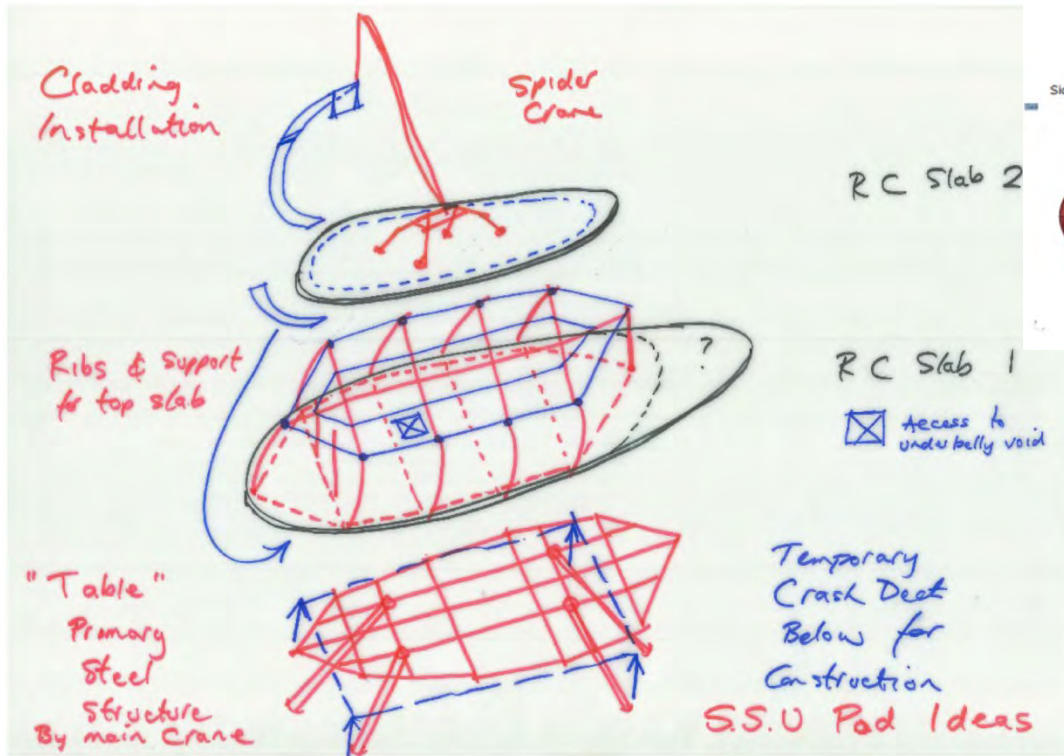 Cladding
Installation
Spider
Crane
R C Slab 2
Ribs & Support
for top slab
?
R C Slab 1
Access to
underbelly void
"Table"
Primary
Steel
Structure
By main Crane
Temporary
Crash Deck
Below for
Construction
S.S.U Pod Ideas